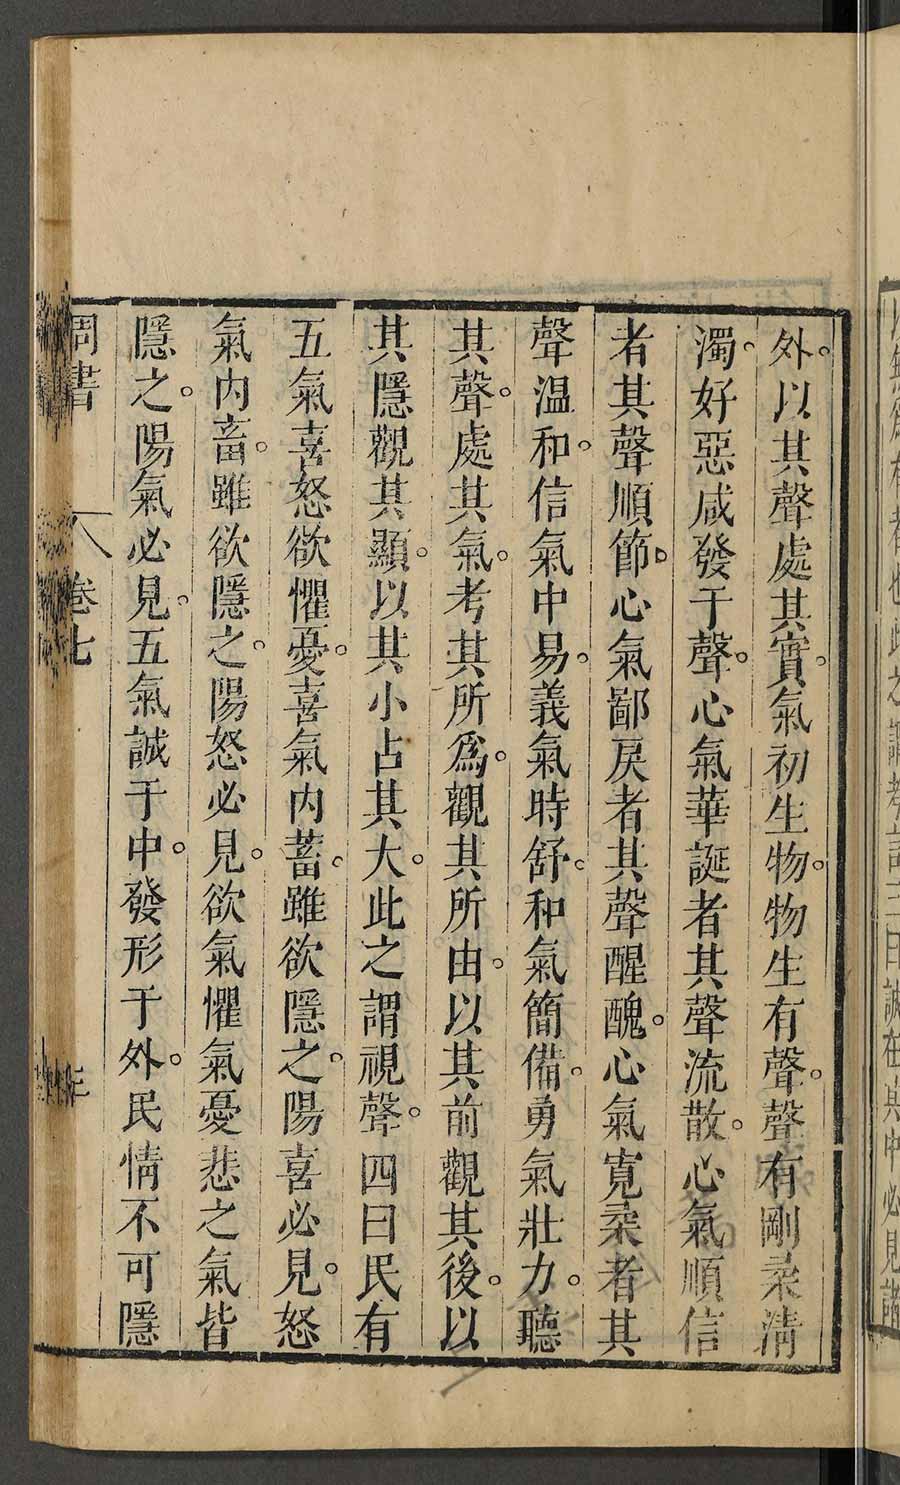 外。以其聲處其實。氣初生物。物生有聲。聲有剛柔清
濁。好惡咸發于聲。心氣華誕者其聲流散。心氣順信
者其聲順節。心氣鄙戾者其聲醒醜。心氣寬柔者其
聲温和。信氣中易。義氣時舒。和氣簡備。勇氣壯力。聽
其聲。處其氣。考其所爲。觀其所由。以其前觀其後。以
其隱觀其顯。以其小占其大。此之謂視聲。四曰民有
五氣喜怒欲懼憂。喜氣内蓄。雖欲隱之。陽喜必見。怒
氣内畜。雖欲隱之。陽怒必見。欲氣懼氣憂悲之氣皆
隱之。陽氣必見。五氣誠于中。發形于外。民情不可隱
周書 卷七